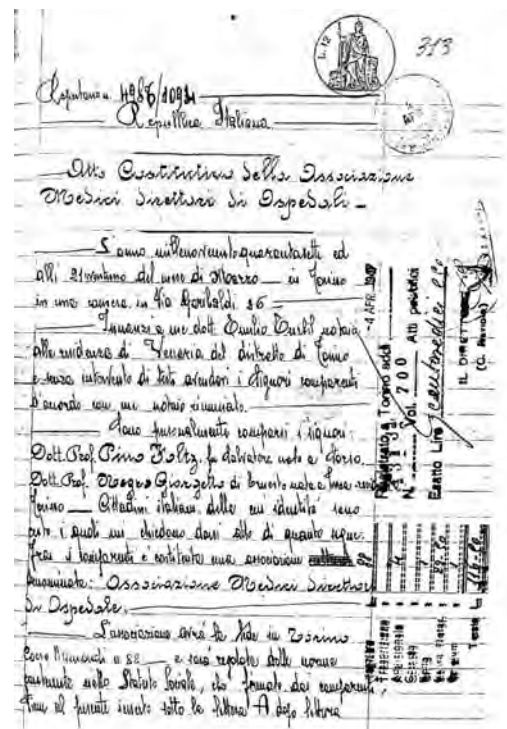 L. 12
313
Repertorio n. 4986/10934
Repubblica Italiana
Atto Costitutivo della Associazione
Medici Direttori di Ospedali -
L'anno millenovecentoquarantasette ed
alli 21 ventuno del mese di Marzo in Torino
in una camera in Via Garibaldi 26
Innanzi a me dott. Emilio Turbil notaio
alla residenza di Venaria del distretto di Torino
e senza intervento di testi avendovi i Signori comparenti
d'accordo con me notaio rinunciato.
Sono personalmente comparsi i signori:
Dott. Prof. Pino Foltz fu Salvatore nato a
Dott. Prof. Negro Giorgello di Ernesto nato a
Torino Cittadini italiani della cui identità sono
certo i quali mi chiedono darsi atto di quanto segue.
Fra i comparenti è costituita una associazione
denominata: Associazione Medici Direttori
di Ospedale.
L'associazione avrà la sede in Torino
Corso n 88 e sarà regolata dalle norme
contenute nello Statuto Sociale, che firmato dai comparenti,
viene al presente inserto sotto la lettera A dopo lettura
-4 APR. 1947
Registrato a Torino addì
N. Vol. 700 Atti pubblici
Esatto Lire
IL DIRETTORE
Totale L.